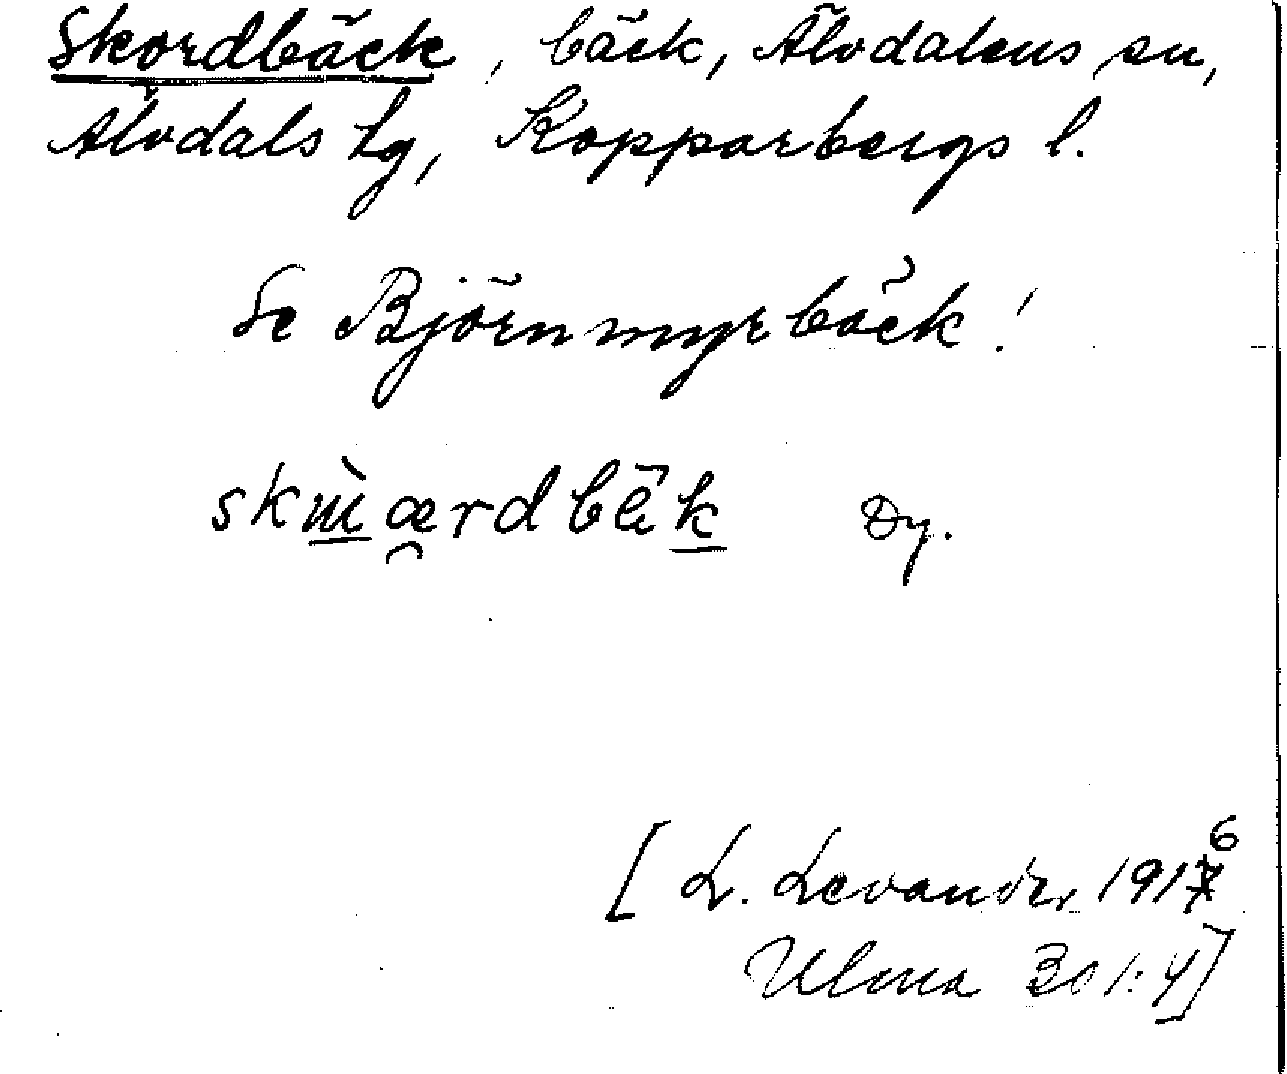 Skordbäck, bäck, Älvdalens sn,
Älvdals tg, Kopparbergs l.
Se Björnmyrbäck!
Dy.
[L. Levander, 1916
Ulma 301:4]